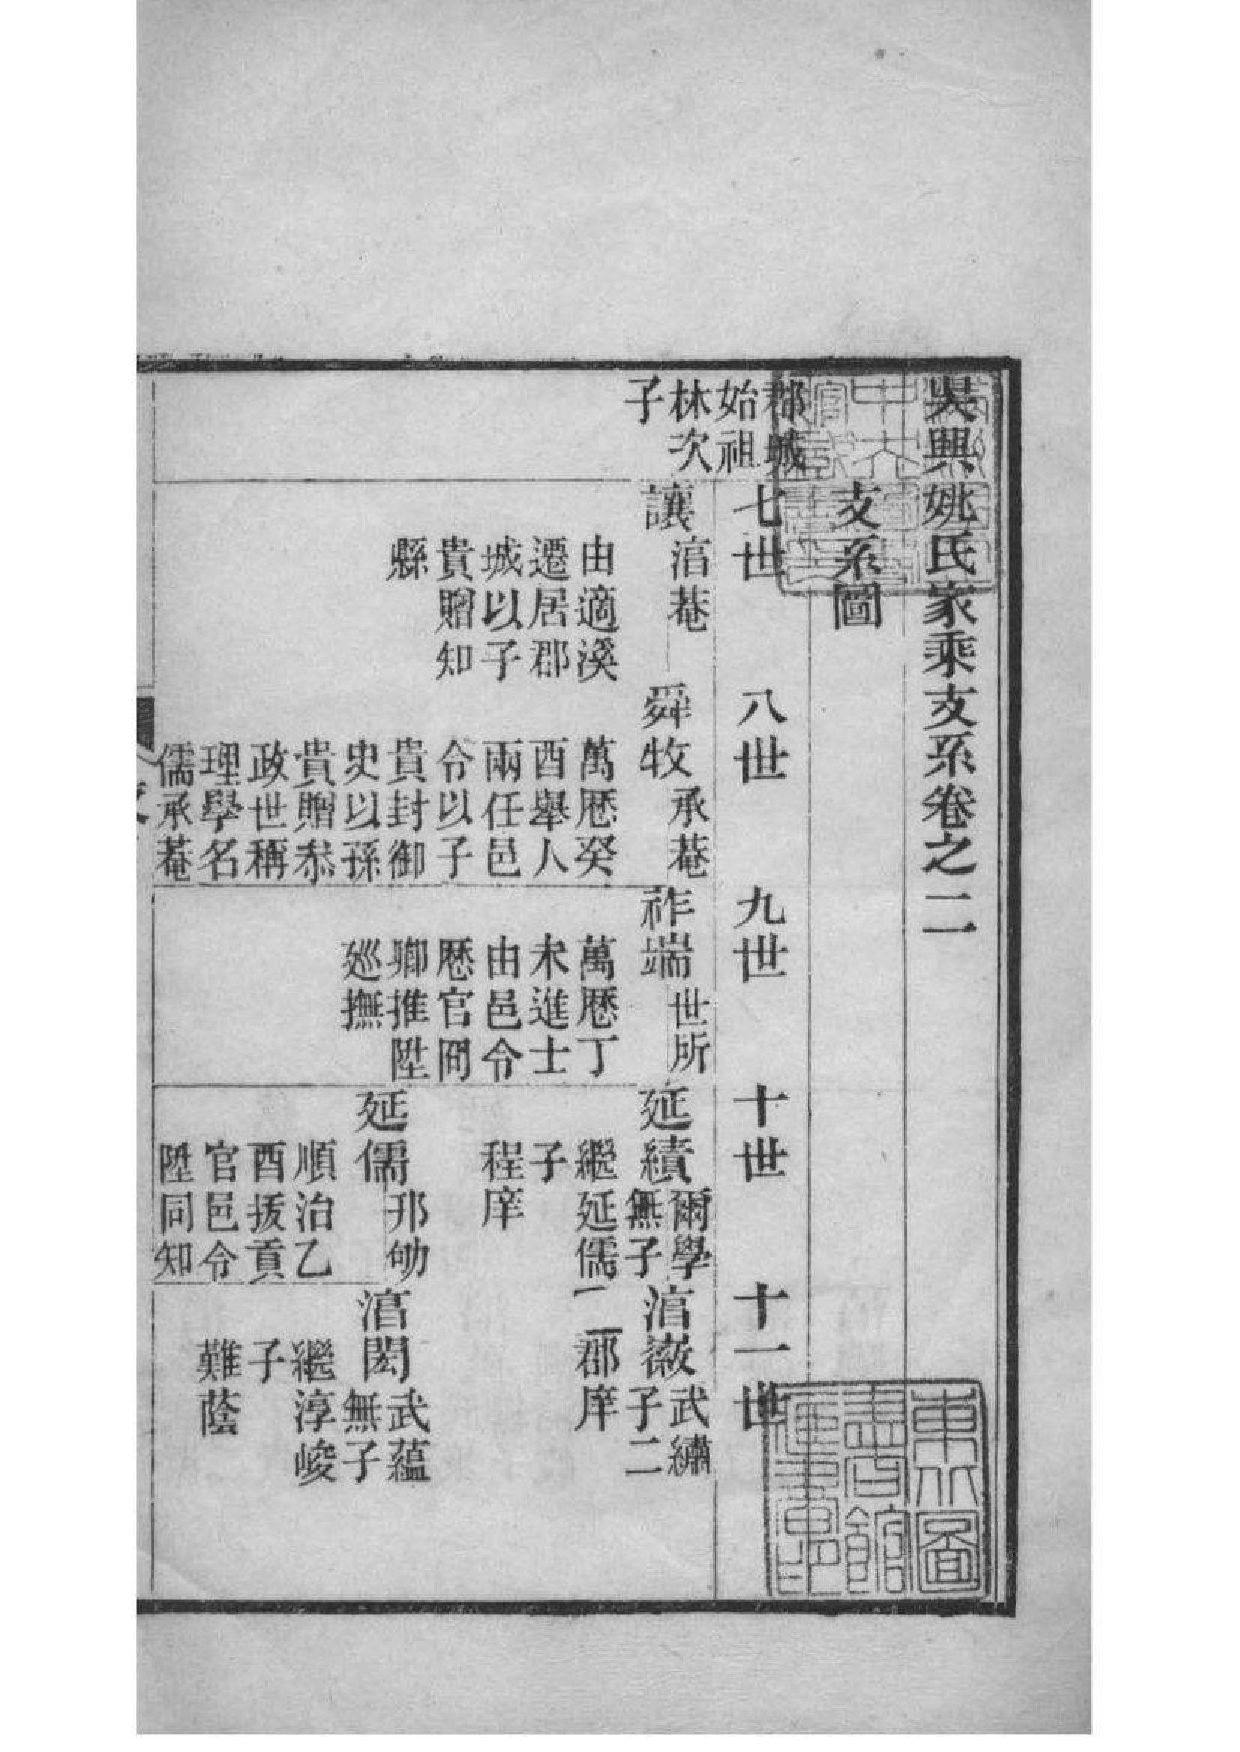 吳興姚氏家乘支系卷之二
支系圖
郡城始祖
七世
八世
九世
十世
十一世
林次子
讓
淯菴
由適溪
遷居郡
城以子
貴贈知
縣
舜牧
承菴
萬歷癸
酉舉人
兩任邑
令以子
貴封御
史以孫
貴贈叅
政世稱
理學名
儒承菴
祚端
世所
萬歷丁
未進士
由邑令
歷官冏
卿推陞
廵撫
延續
爾學
無子
繼延儒
子
程庠
淯嶶
武繡
子二
郡庠
延儒
邘劬
順治乙
酉拔貢
官邑令
陞同知
淯閎
武蘊
無子
繼淳峻
子
難蔭
東方圖
書館